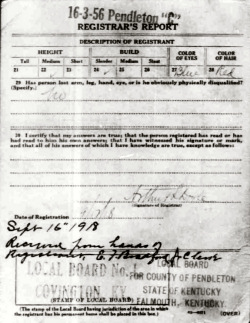 16-3-56 Pendleton
REGISTRAR'S REPORT
DESCRIPTION OF REGISTRANT
HEIGHT BUILD COLOR OF EYES COLOR OF HAIR
Tall Medium Short Slender Medium Stout
21 22 23 24 25 26 27 Blue 28 Red
29 Has person lost arm, leg, hand, eye, or is he obviously physically disqualified?
(Specify.)
No
30 I certify that my answers are true; that the person registered has read or has
had read to him his own answers; that I have witnessed his signature or mark,
and that all of his answers of which I have knowledge are true, except as follows:
Date of Registration
Sept 16" 1918
Received from hands of
LOCAL BOARD
COVINGTON KY
LOCAL BOARD
FOR COUNTY OF PENDLETON
STATE OF KENTUCKY
FALMOUTH, KENTUCKY
(STAMP OF LOCAL BOARD)
(The stamp of the Local Board having jurisdiction of the area in which
the registrant has his permanent home shall be placed in this box.)
(OVER)